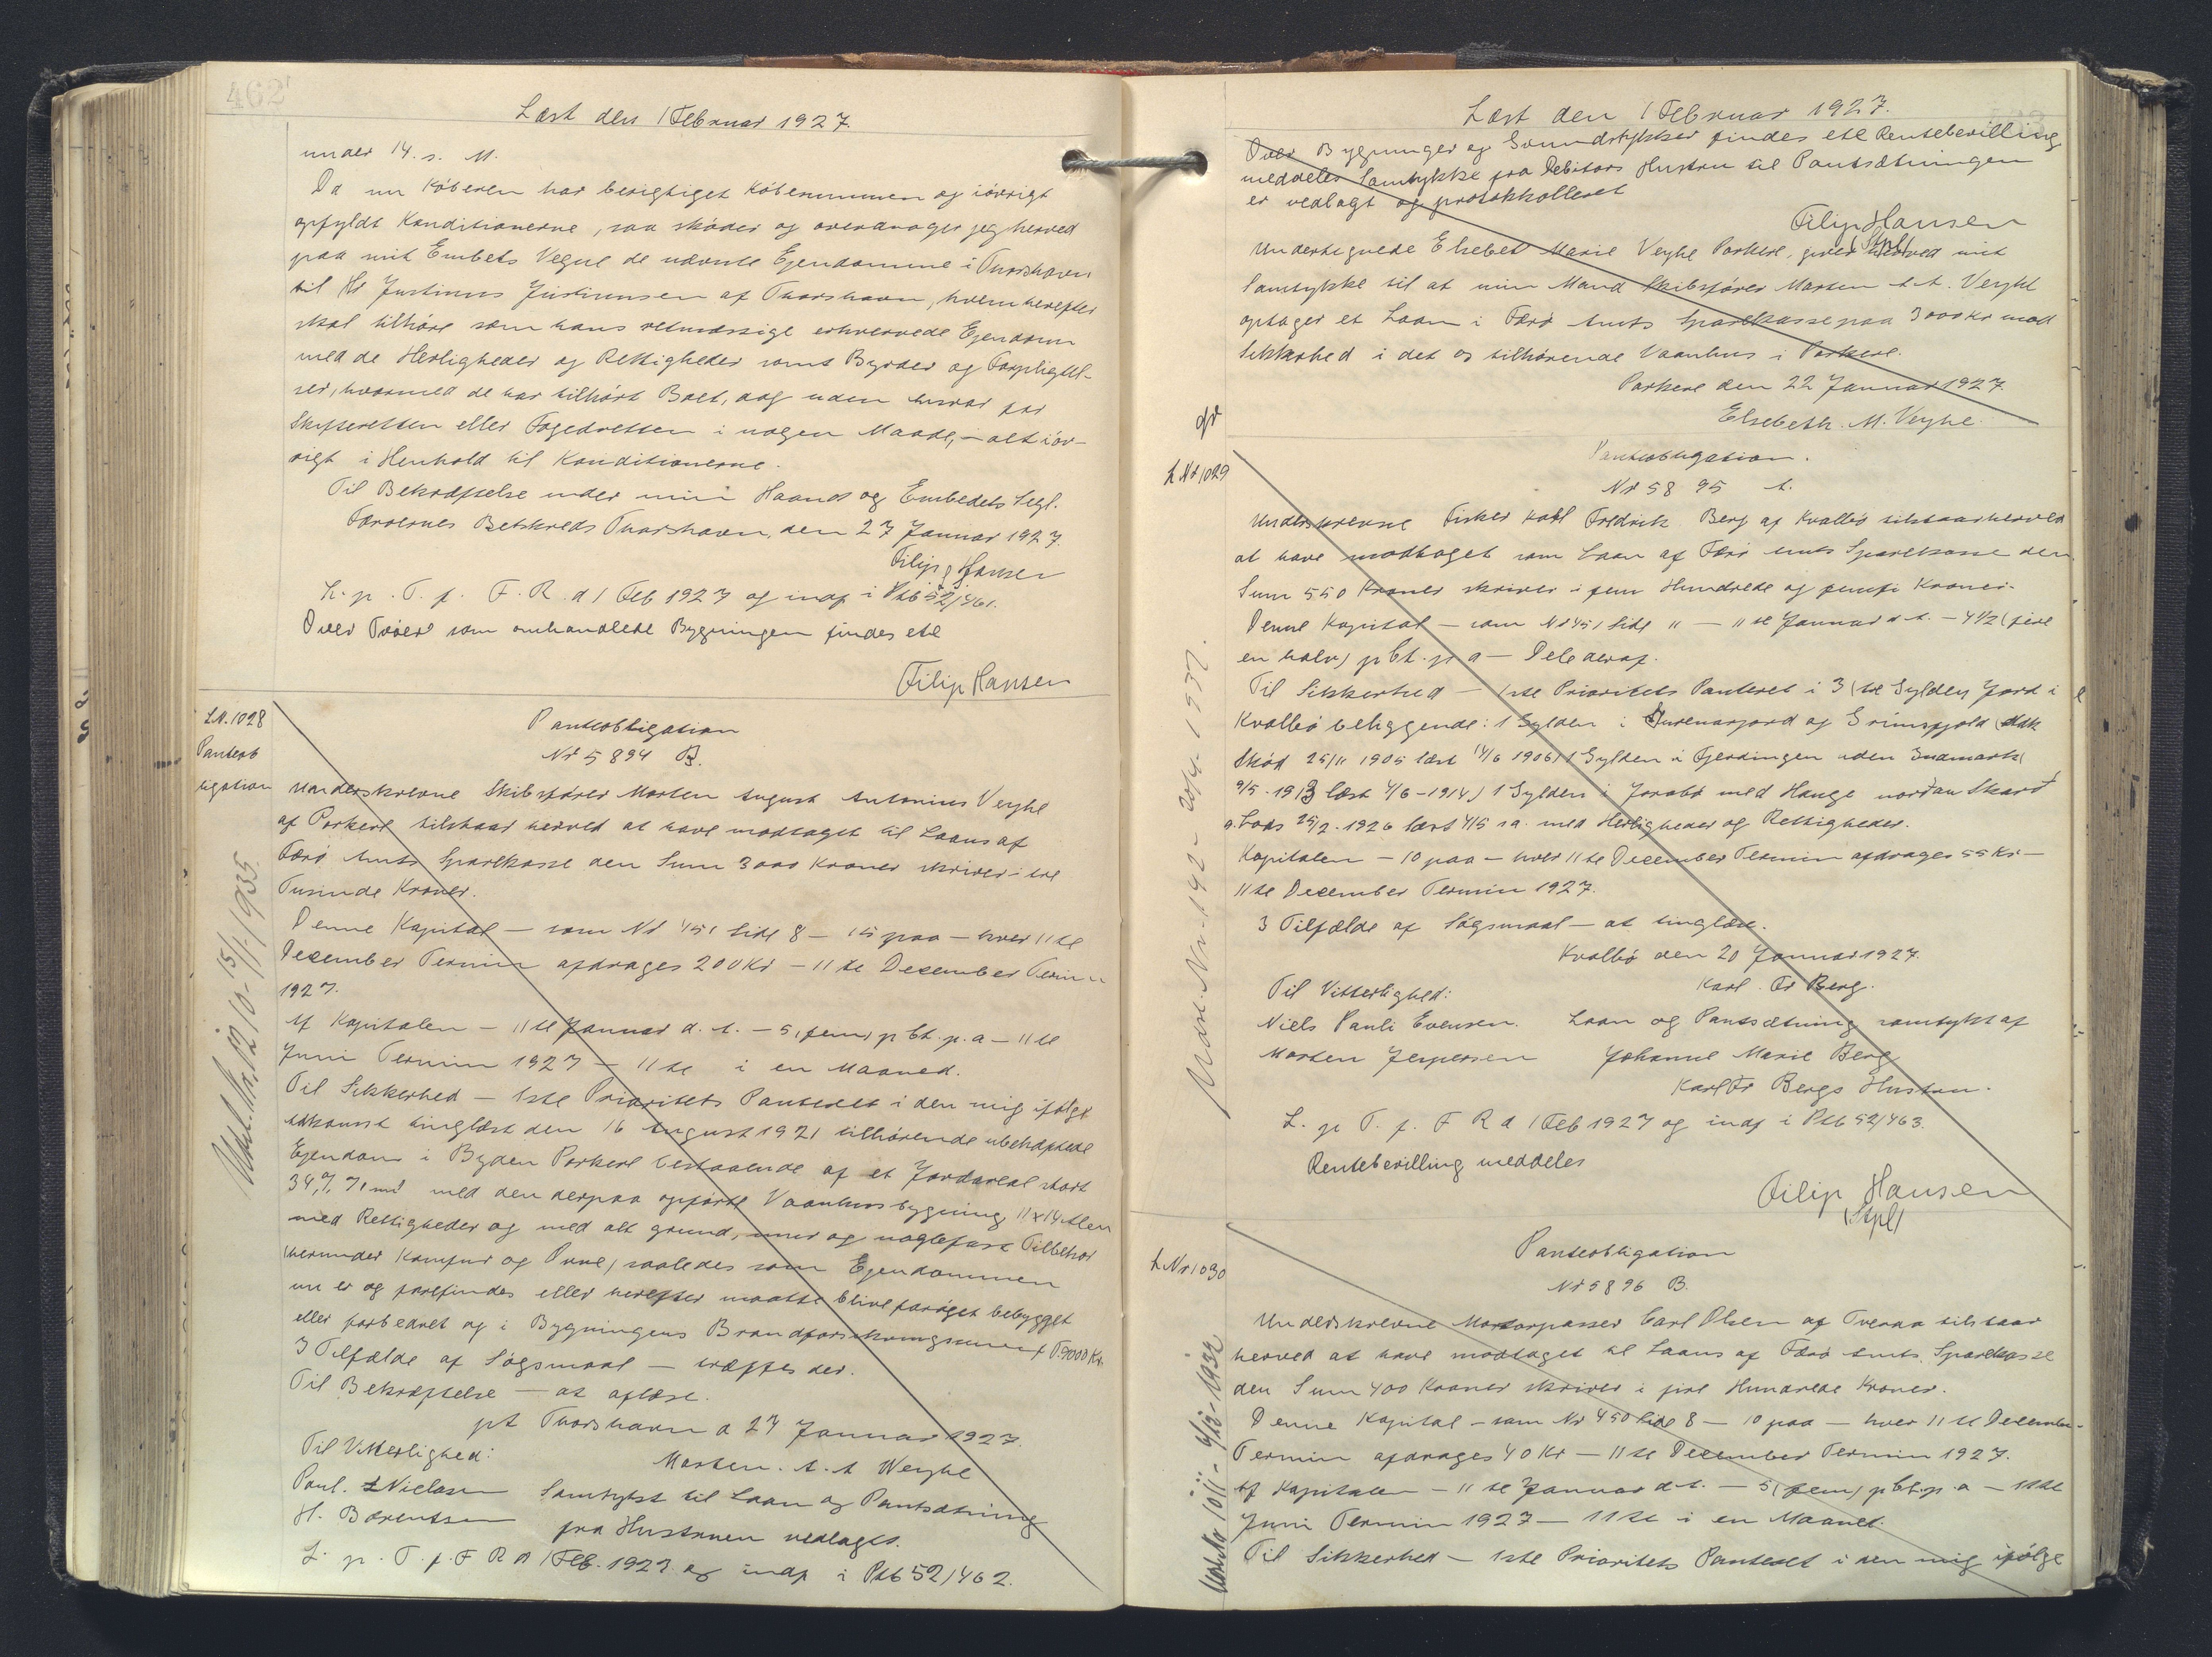 462
Læst den 1 Februar 1927.
under 14. s. M.
Da nu Køberen har berigtiget Købesummen og iøvrigt
opfyldt Konditionerne, saa skøder og overdrager jeg herved
paa mit Embets Vegne de nævnte Ejendomme i Thorshavn
til Hr Justinus Justinussen af Thorshavn, hvem herefter
skal tilhøre som hans retmæssige erhvervede Ejendom
med de Herligheder og Rettigheder samt Byrder og Forpligtel-
ser, hvormed de har tilhørt Boet, dog uden Ansvar for
Skifteretten eller Fogedretten i nogen Maade, - alt iøv-
rigt i Henhold til Konditionerne.
Til Bekræftelse under min Haand og Embedets Segl.
Færøernes Retskreds Thorshavn, den 27 Januar 1927.
Filip Hansen
L. p. T. f. F. R. d 1 Feb 1927 og indf i Ptb 52/461.
Over Tvøer som omhandlede Bygningen findes ete
Filip Hansen
L.N. 1028
Panteob
ligation
Panteobligation
Nr 5894 B.
Underskrevne Skibsfører Morten August Antonius Veyhe
af Porkere tilstaar herved at have modtaget til Laans af
Færø Amts Sparekasse den Sum 3000 Kroner skriver - tre
Tusinde Kroner.
Denne Kapital - som Nr 451 Side 8 - 15 paa - hver 11te
December Termin afdrages 200 Kr - 11te December Termin
1927.
Af Kapitalen - 11te Januar d. A. - 5, fem, p Ct. p. a - 11te
Juni Termin 1927 - 11te i en Maaned.
Til Sikkerhed - 1ste Prioritets Panteret i den mig ifølge
Adkomst tinglæst den 16 August 1921 tilhørende ubehæftede
Ejendom i Bygden Porkere bestaaende af et Jordareal stort
34,7, 71 m² med den derpaa opførte Vaanhusbygning 11x14 Alen
med Rettigheder og med alt grund, mur og naglefast Tilbehør
(herunder Komfur og Ovne, saaledes som Ejendommen
nu er og forefindes eller herefter maatte blive forøget bebygget
eller forbedret og i Bygningens Brandforsikringssum f T. 9000 Kr.
3 Tilfælde af Søgsmaal - træffes der.
Til Bekræftelse - at aflæse.
pt Thorshavn d 27 Januar 1927.
Til Vitterlighed: Morten. A. A Weyhe
Poul. Nielsen Samtykst til Laan og Pantsætning
H. Berentsen fra Hustruen vedlagt.
L. p. T. f. F R d 1 Feb. 1927. og indf i Ptb 52/462.
Udsl. No. 10 - 15/1 1935.
Læst den 1 Februar 1927.
Over Bygninger og Grundstykker findes ete Rentebevilling
meddeles Samtykke fra Debitors Hustru til Pantsætningen
er vedlagt og protokolleret
Filip Hansen
(Stpl)
Undertegnede Elsebet Marie Veyhe Porkere, giver herved mit
Samtykke til at min Mand Skibsfører Morten A. A. Veyhe
optager et Laan i Færø Amts Sparekasse paa 3000 Kr mod
Sikkerhed i det os tilhørende Vaanhus i Porkere.
Porkere den 22 Januar 1927.
Elsebeth. M. Veyhe.
L Nr 1029
Panteobligation.
Nr 5895 A.
Underskrevne Fisker Karl Fredrik Berg af Kvalbø tilstaar herved
at have modtaget som Laan af Færø Amts Sparekasse den
Sum 550 Kroner skriver - fem Hundrede og femti Kroner.
Denne Kapital - som Nr 451 Side " - 11te Januar d A. - 4 1/2 (fire
en halv) p Ct. p a - Dele deraf.
Til Sikkerhed - 1ste Prioritets Panteret i 3 (tre Gylden Jord i
Kvalbø beliggende: 1 Gylden i Hurenarjord og Grimsfjold (
Skød 25/11 1905 læst 14/6 1906) 1 Gylden i Fjerdingen uden Indmark(
9/5 - 1913 læst 4/6 - 1914) 1 Gylden i Jorabø med Hauge nordan Skard
25/2. 1926 læst 4/5 s.a. med Herligheder og Rettigheder.
Kapitalen - 10 paa - hver 11te December Termin afdrages 55 Kr -
11te December Termin 1927.
3 Tilfælde af Søgsmaal - at tinglæse.
Kvalbø den 20 Januar 1927.
Til Vitterlighed: Karl. Fr Berg.
Niels Pauli Evensen. Laan og Pantsætning samtykt af
Morten Jespersen Johanne Marie Berg
Karl Fr Bergs Hustru.
L. p T. f. F R d 1 Feb 1927 og indf i Ptb 52/463.
Rentebevilling meddeles
Filip Hansen
(Stpl)
L Nr 1030
Panteobligation
Nr 5896 B.
Underskrevne Motorpasser Carl Olsen af Tveraa tilstaar
herved at have modtaget til Laans af Færø Amts Sparekasse
den Sum 400 Kroner skriver i fire Hundrede Kroner.
Denne Kapital - som Nr 450 Side 8 - 10 paa - hver 11te December-
Termin afdrages 40 Kr - 11te December Termin 1927.
Af Kapitalen - 11te Januar d A. - 5 (fem) p Ct. p a - 11te
Juni Termin 1927 - 11te i en Maaned.
Til Sikkerhed - 1ste Prioritets Panteret i den mig ifølge